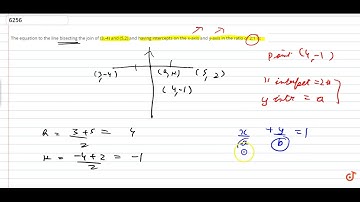 6256
The equation to the line bisecting the join of (3,-4) and (5,2) and having intercepts on the x-axis and y-axis in the ratio of 2:1 is
point (4,-1)
(3-4) (R,H) (5,2)
(4,-1)
x intercept = 2a
y intr = a
R = 3+5 / 2 = 4
x/a + y/b = 1
H = -4+2 / 2 = -1